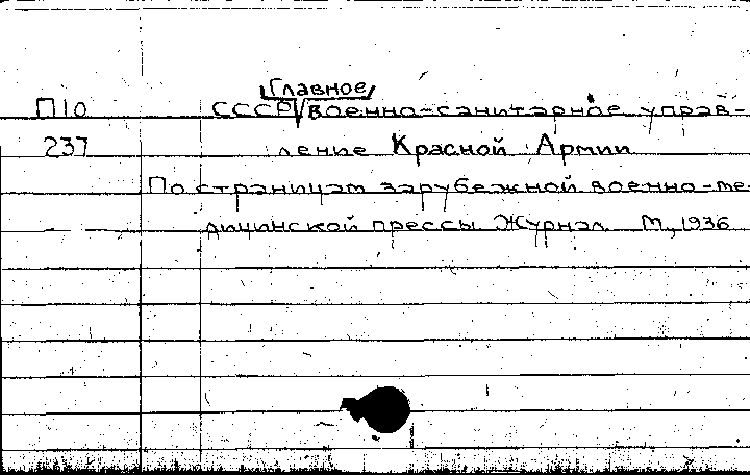 Главное
П10 СССР Военно-санитарное управ-
237 ление Красной Армии
По страницам зарубежной военно-ме-
дицинской прессы Журнал М., 1936